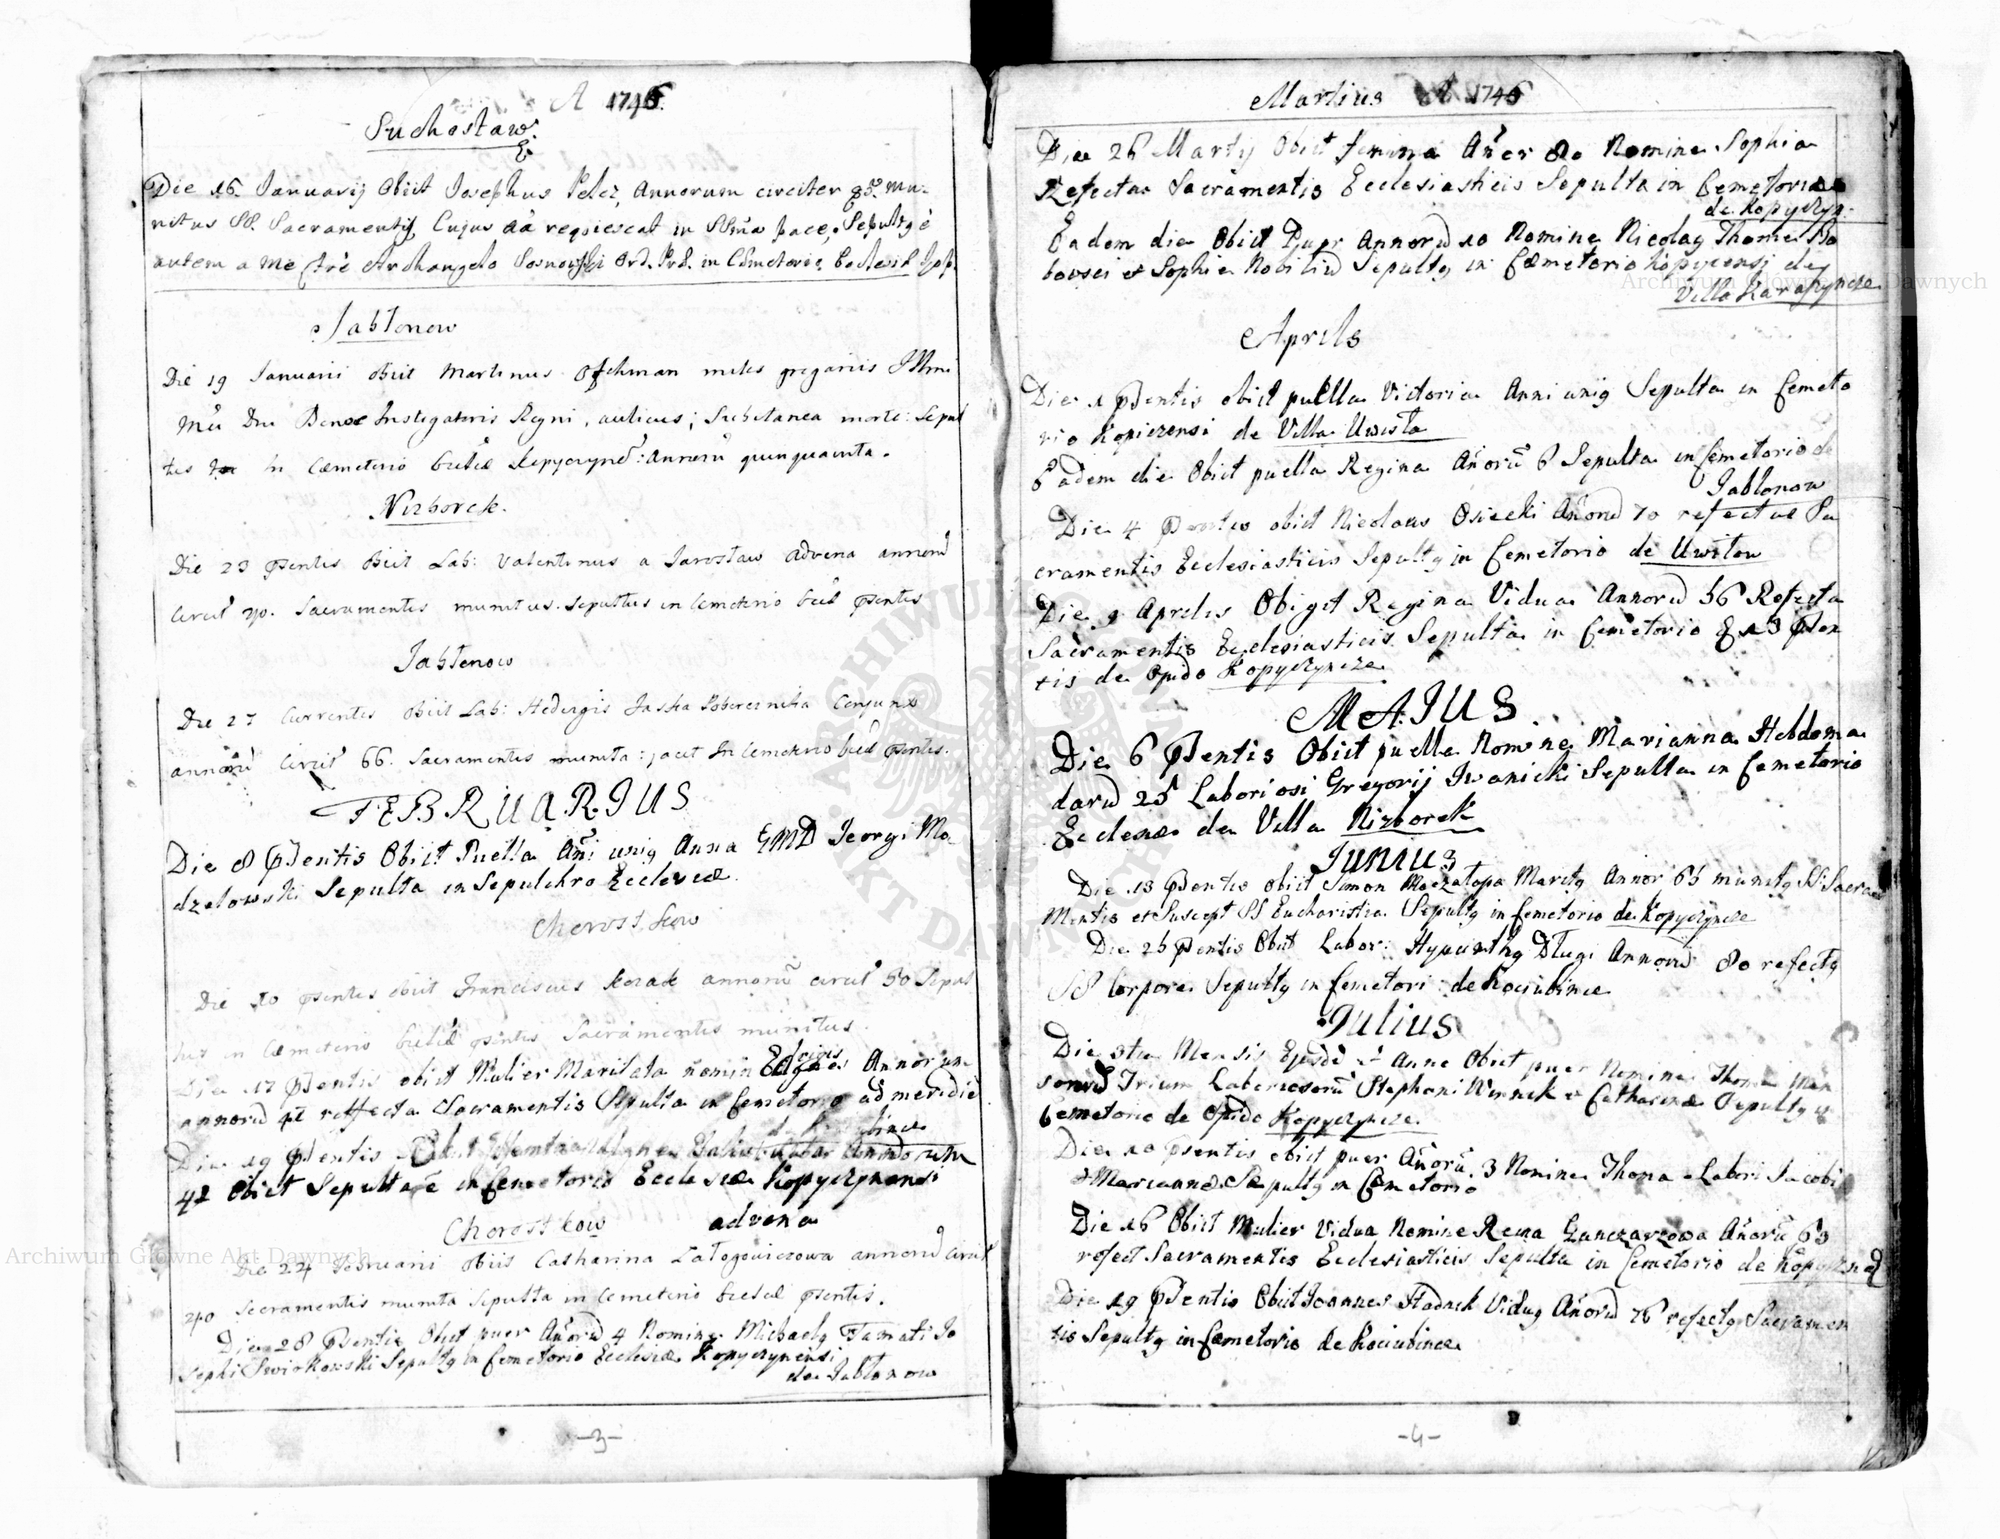 A 1746.
Suchostaw.
Die 16 Januarij Obiit Josephus Pelcz, Annorum circiter 85. mu-
nitus SS. Sacramentis, Cujus aa requiescat in pace, Sepultg è
autem a me Archangelo Ord. Prd. in Cemeterio
Jabłonow
Die 19 Januarii obiit Martinus miles gregarius Illmi
Instigatoris Regni, aulicus; Subitanea morte: Sepul
tus in Cæmeterio Eccliæ Kopyczync: Annorū quinquainta.
Nizborek.
Die 23 pSentis Obiit Lab: Valentinus a Jarosław advena annorū
circit 70. Sacramentis munitus. Sepultus in Cemeterio Eccl pSentis
Jabłonow
Die 27 Currentis obiit Lab: Hedvigis Jaska Poberezniha Conjunx
annorū circit 66. Sacramentis munita: jacet In Cemeterio Eccl pSentis.
FEBRUARIUS
Die 8 pSentis Obiit Puella Ani unig Anna GMD Jeorgi Mo-
dzelowski Sepulta in Sepulchro Ecclesiæ
Chorostkow
Die 10 pSentis obiit Franciscus Kozak annorū circit 50 Sepul
tus in Cæmeterio Eccliæ pSentis Sacramentis munitus.
Die 17 pSentis obiit Mulier Maritata nomin Annorum
annorū 42 reffecta Sacramentis Sepulta in Cemetorio ad meridie
Die 19 pSentis
42 Obiit Sepulta è in Cemetorio Ecclesiæ Kopyczynensi
Chorostkow advena
Die 24 Februarii obiit Catharina Załogowiczowa annorū circit
40 Sacramentis munita Sepulta in Cemeterio Eccleæ pSentis.
Die 28 pSentis Obiit puer Añorū 4 Nomine Michaelg Famati Jo
sephi Swiokowski Sepultg in Cemetorio Ecclesiæ Kopyczynensi
de Jabłonow
-3-
Martius A 1746
Die 26 Martij Obiit femina Añor 80 Nomine Sophia
Refecta Sacramentis Ecclesiasticis Sepulta in Cemetorio
de Kopyczyn.
Eadem die Obiit Puer Annorū 10 Nomine Nicolag Thome
et Sophie Nobiliū Sepultg in Cæmetorio Kopycensj de
Villa Karaszyncze
Aprils
Die 1 pSentis obiit puella Victoria Anni unig Sepulta in Cemeto
rio Kopiczensi de Villa Uwisła
Eadem die Obiit puella Regina Añorū 6 Sepulta in Cemetorio de
Jabłonow
Die 4 pSentis obiit Nicolaus Osiecki Añorū 70 refectus Sa
cramentis Ecclesiasticis Sepultg in Cemetorio de Uwisłow
Die 9 Aprilis Obigit Regina Vidua Annorū 56 Refecta
Sacramentis Ecclesiasticis Sepulta in Cemetorio 13 pSen
tis de Opido Kopyczyncze
MAJUS
Die 6 pSentis Obiit puella Nomine Marianna Hebdoma
darū 25 Laboriosi Gregorij Iwanicki Sepulta in Cemetorio
Eccleæ de Villa Nizborek
Junius
Die 13 pSentis obiit Simon Maczałopa Maritg Annor 65 munitg SS Sacra
Mentis et Suscept SS Eucharistia Sepultg in Cemetorio de Kopyczyncze
Die 25 pSentis Obiit Labor: Hyacinthg Długi Annorū 80 refectg
SS Corpore Sepultg in Cemetori: de Kociubince
Julius
Die 3tia Mensis Ejusdē et Anne Obiit puer Nomine Thoma Men
sorrū Trium Laboriosorū Stephani Winnik et Catharinæ Sepultg in
Cemetorio de Opido Kopyczyncze
Die 10 pSentis obiit puer Añorū 3 Nomine Thoma Labori Jacobi
et Mariannæ Sepultg in Cemetorio
Die 16 Obiit Mulier Vidua Nomine Rega Ganczarzowa Añorū 63
refect Sacramentis Ecclesiasticis Sepulta in Cemetorio de
Die 19 pSentis Obiit Joannes Stadnik Vidug Añorū 76 refectg Sacramen
tis Sepultg in Cæmetorio de Kociubince
-4-
Archiwum Główne Akt Dawnych
Archiwum Główne Akt Dawnych
ARCHIWUM GŁÓWNE AKT DAWNYCH